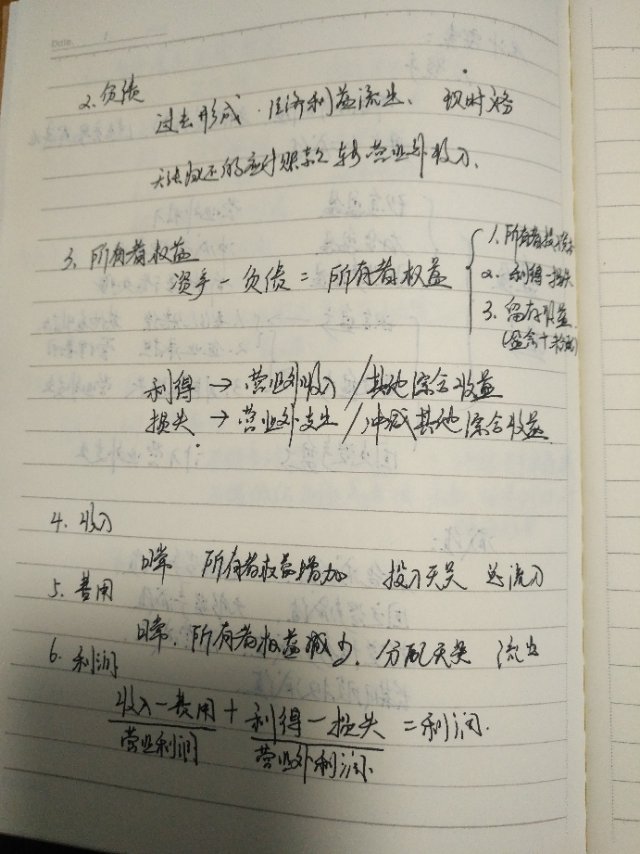 Date.
2. 负债
过去形成. 经济利益流出、 现时义务
无法收还的应付账款 转 营业外收入.
3. 所有者权益
资产 - 负债 = 所有者权益
1. 所有者投入资本
2. 利得-损失
3. 留存收益
(盈余+未分配)
利得 → 营业外收入 / 其他综合收益
损失 → 营业外支出 / 冲减其他综合收益
4. 收入
日常 所有者权益增加 投入无关 总流入
5. 费用
日常. 所有者权益减少. 分配无关 流出
6. 利润
收入-费用 + 利得-损失 = 利润.
营业利润 营业外利润